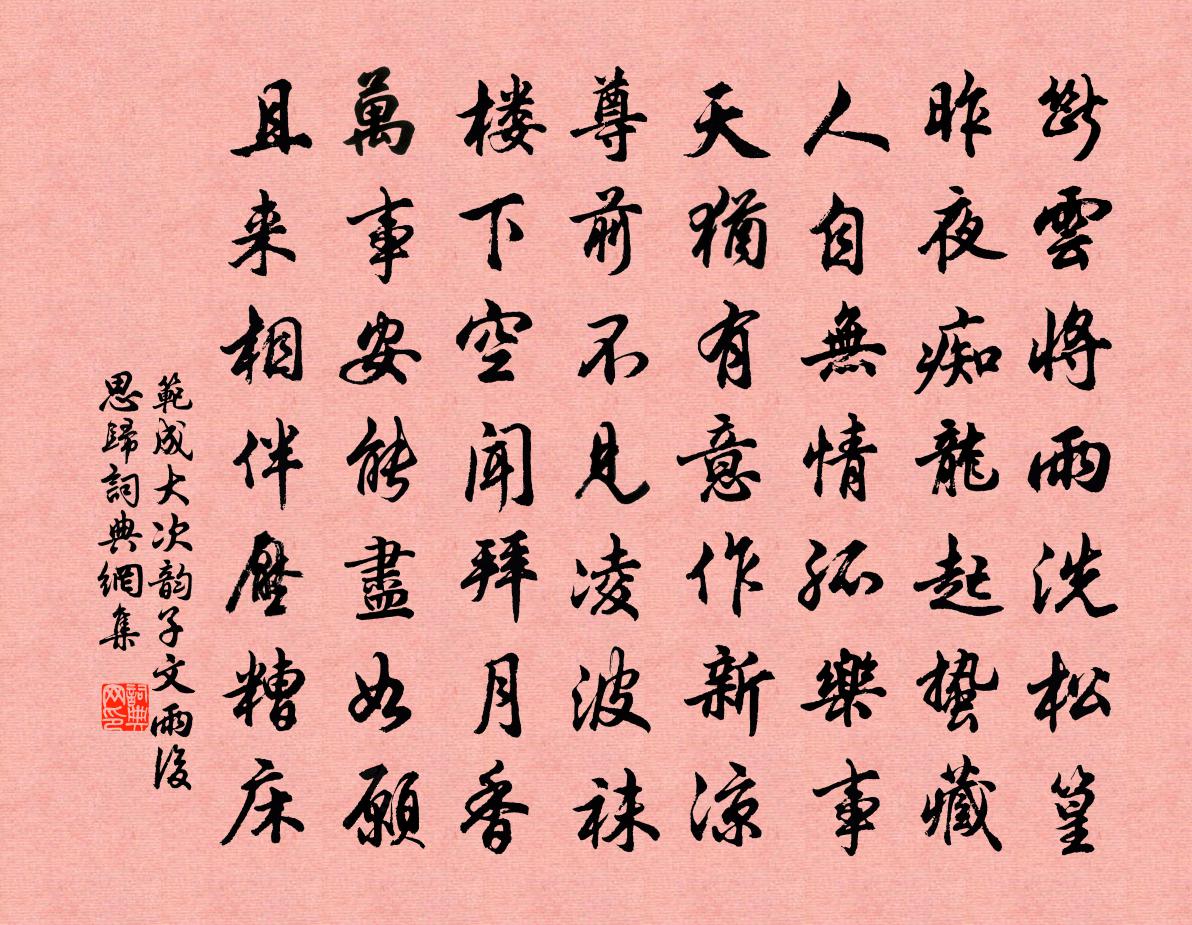 斷雲將雨洗松篁
昨夜痴龍起蟄藏
人自無情孤樂事
天猶有意作新涼
尊前不見凌波袜
楼下空聞拜月香
萬事安能盡如願
且来相伴壓糟床
範成大次韵子文雨後
思歸詞典網集
詞典网印